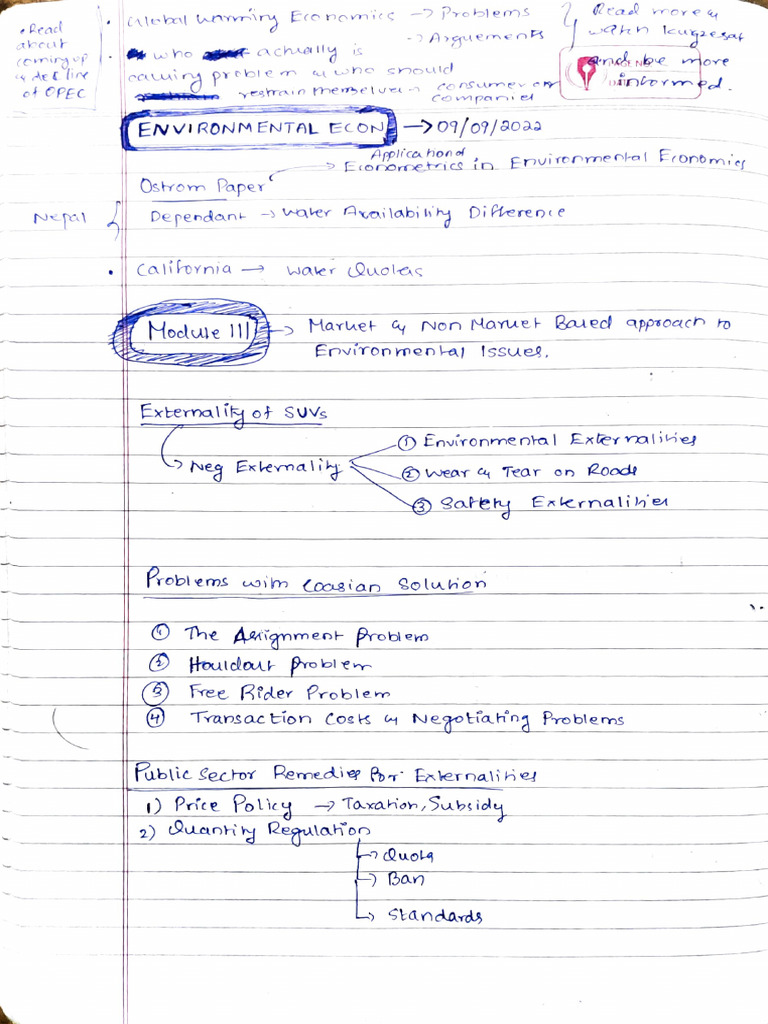 • Read
about
coming up
& decline
of OPEC
• Global Warming Economics → Problems
→ Arguements
Read more &
watch kurgzesat
and be more
informed.
• who actually is
causing problem & who should
restrain themselves → consumer or
companies
ENVIRONMENTAL ECON → 09/09/2022
Ostrom Paper → Application of
Econometrics in Environmental Economics
Nepal { Dependant → Water Availability Difference
• California → Water Quotas
Module III → Market & Non Market Based approach to
Environmental Issues.
Externality of SUVs
→ Neg Externality
① Environmental Externalities
② Wear & Tear on Roads
③ Safety Externalities
Problems with Coasian Solution
① The Assignment Problem
② Houldout Problem
③ Free Rider Problem
④ Transaction Costs & Negotiating Problems
Public Sector Remedies for Externalities
1) Price Policy → Taxation, Subsidy
2) Quantity Regulation
→ Quota
→ Ban
→ Standards